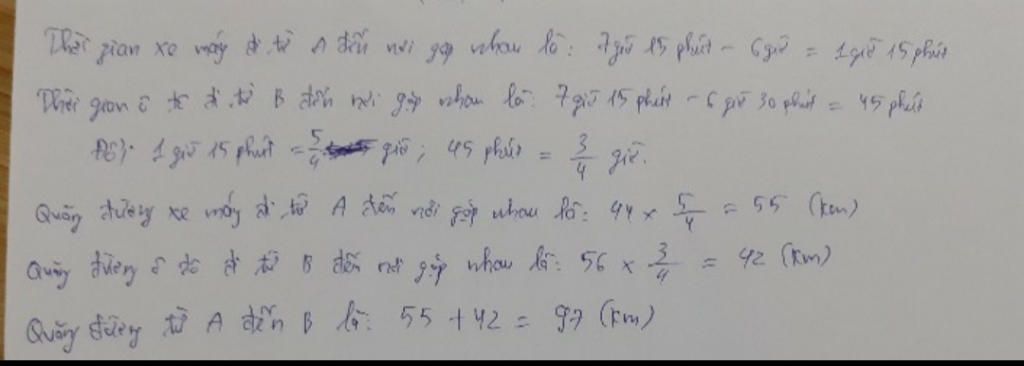 Thời gian xe máy đi từ A đến nơi gặp nhau là: 7giờ 15 phút - 6giờ = 1giờ 15 phút
Thời gian ô tô đi từ B đến nơi gặp nhau là: 7 giờ 15 phút - 6 giờ 30 phút = 45 phút
Đổi: 1 giờ 15 phút = 5/4 giờ; 45 phút = 3/4 giờ.
Quãng đường xe máy đi từ A đến nơi gặp nhau là: 44 × 5/4 = 55 (km)
Quãng đường ô tô đi từ B đến nơi gặp nhau là: 56 × 3/4 = 42 (km)
Quãng đường từ A đến B là: 55 + 42 = 97 (km)